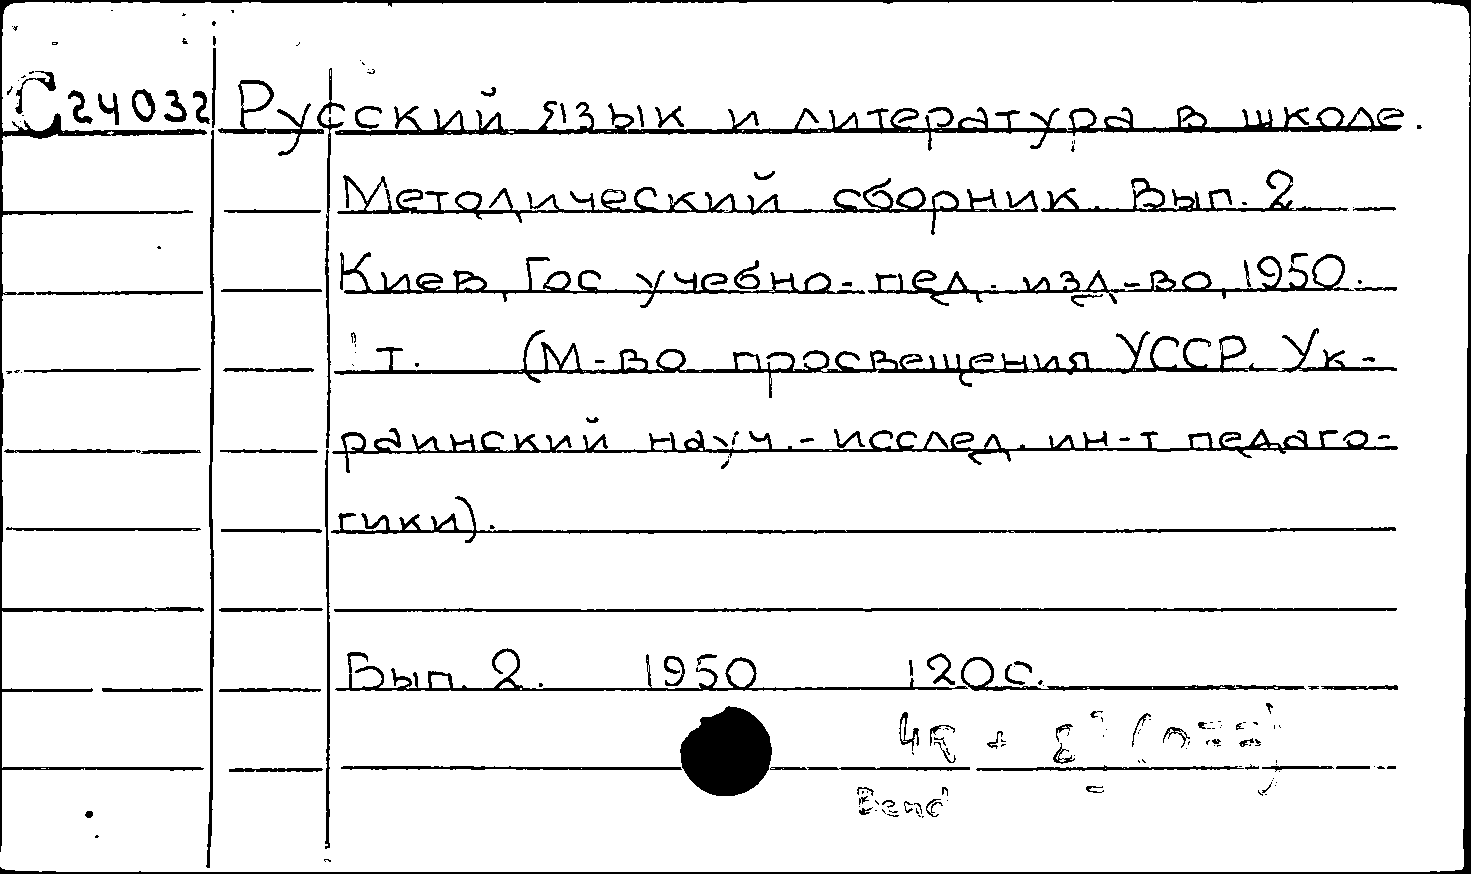 C24032 Русский язык и литература в школе.
Методический сборник. Вып. 2
Киев, Гос учебно-пед. изд-во, 1950.
т. (М-во просвещения УССР. Ук-
раинский науч.-исслед. ин-т педаго-
гики).
Вып. 2. 1950 120с.
Bend